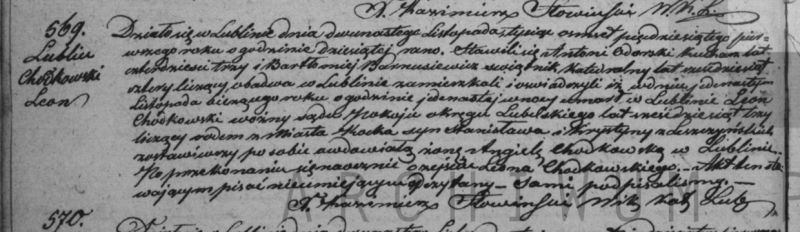 X. Kazimierz Słowiński W. K. L.
569.
Lublin
Chodkowski
Leon
Działo się w Lublinie dnia dwunastego Listopada tysiąc ośmset pięćdziesiątego pier-
wszego roku o godzinie dziesiątej rano. Stawili się Antoni Odorski kucharz lat
czterdzieści trzy i Bartłomiej Barnusiewicz świątnik Katedralny lat
cztery liczący obadwa w Lublinie zamieszkali i oświadczyli iż w dniu jedenastym
Listopada bieżącego roku o godzinie jedenastej w nocy umarł w Lublinie Leon
Chodkowski woźny sądu Pokoju okręgu Lubelskiego lat sześćdziesiąt trzy
liczący rodem z Miasta Kocka syn Stanisława i Krystyny z Leszczyńskich
zostawiwszy po sobie owdowiałą żonę Angielę Chodkowską w Lublinie.
Po przekonaniu się naocznie o zejściu Leona Chodkowskiego. — Akt ten sta
wającym pisać nieumiejącym przeczytany — sami podpisaliśmy. —
X. Kazimierz Słowiński Wik. Kat. Lub.
ARCHIWUM
570.